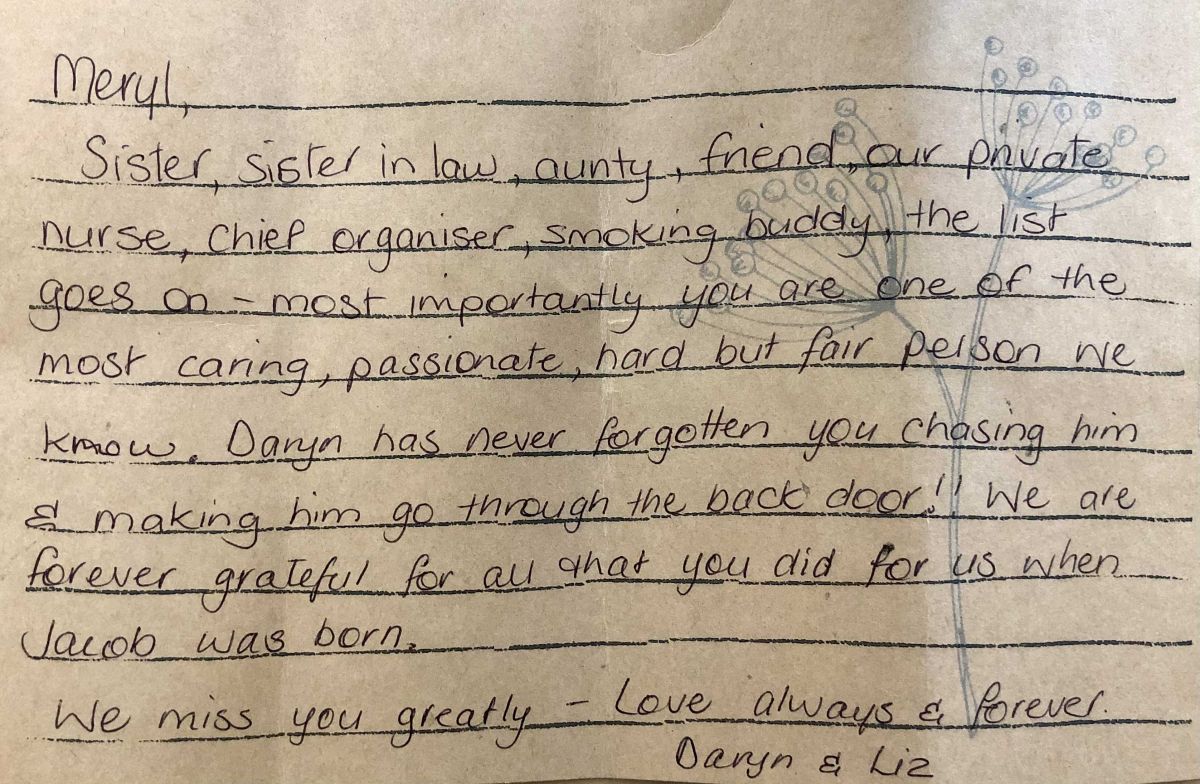 Meryl,
Sister, sister in law, aunty, friend, our private
nurse, chief organiser, smoking buddy, the list
goes on - most importantly you are one of the
most caring, passionate, hard but fair person we
know. Daryn has never forgotten you chasing him
& making him go through the back door!! We are
forever grateful for all that you did for us when
Jacob was born.
We miss you greatly - Love always & forever.
Daryn & Liz